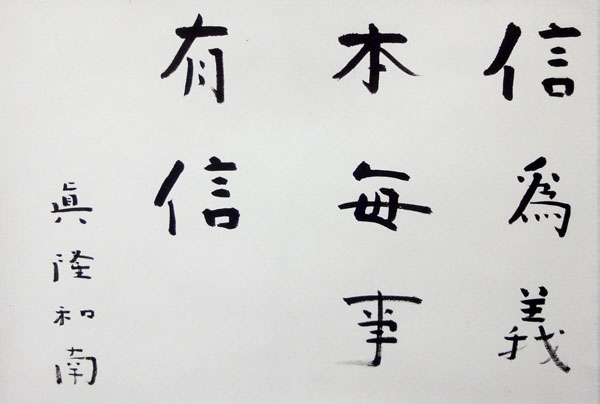 信為義
本毎事
有信
眞隆和南